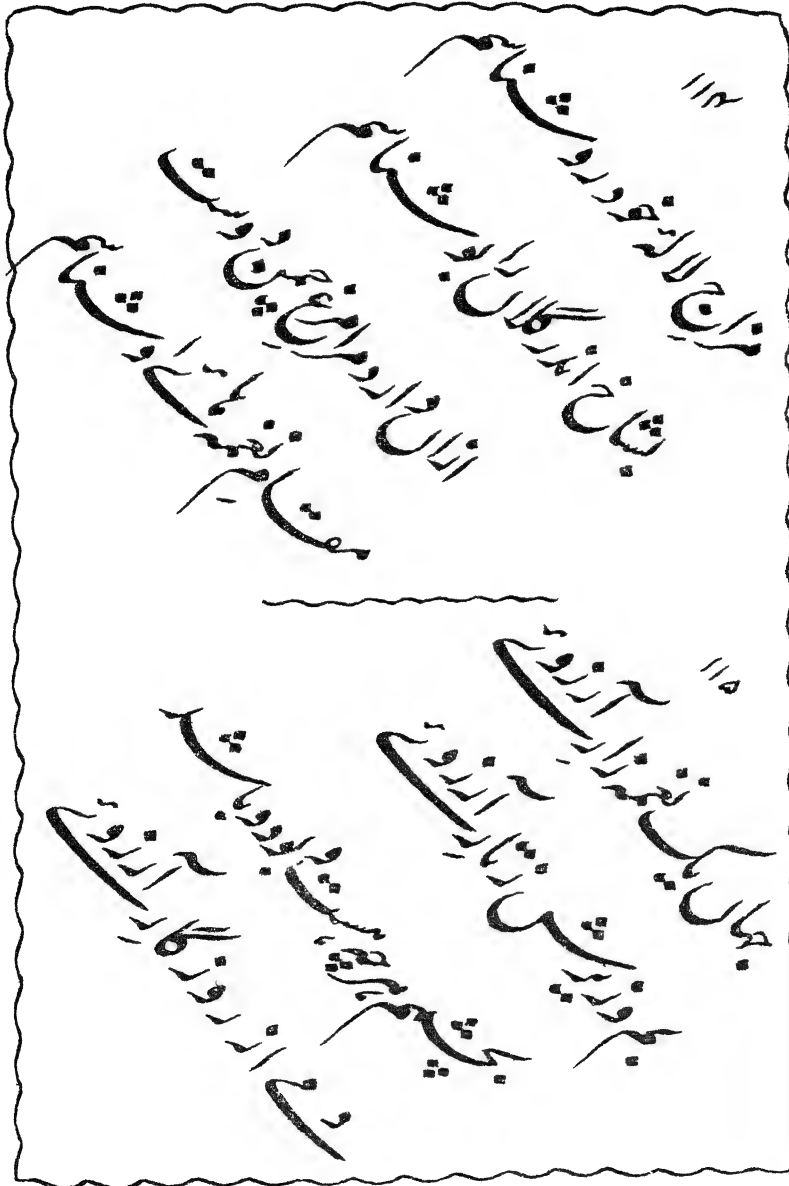 ۱۱۴
مزاج لالهٔ خود رو شناسم
بشاخ اندر گلاں را بو شناسم
ازاں دارد مرا مرغ چمن دوست
مقامِ نغمہ ہائے او شناسم
۱۱۵
جہاں یک نغمہ زارے آرزوئے
بم و زیرش ز تارے آرزوئے
بچشمم ہرچہ ہست و بود و باشد
دمے از روزگارے آرزوئے